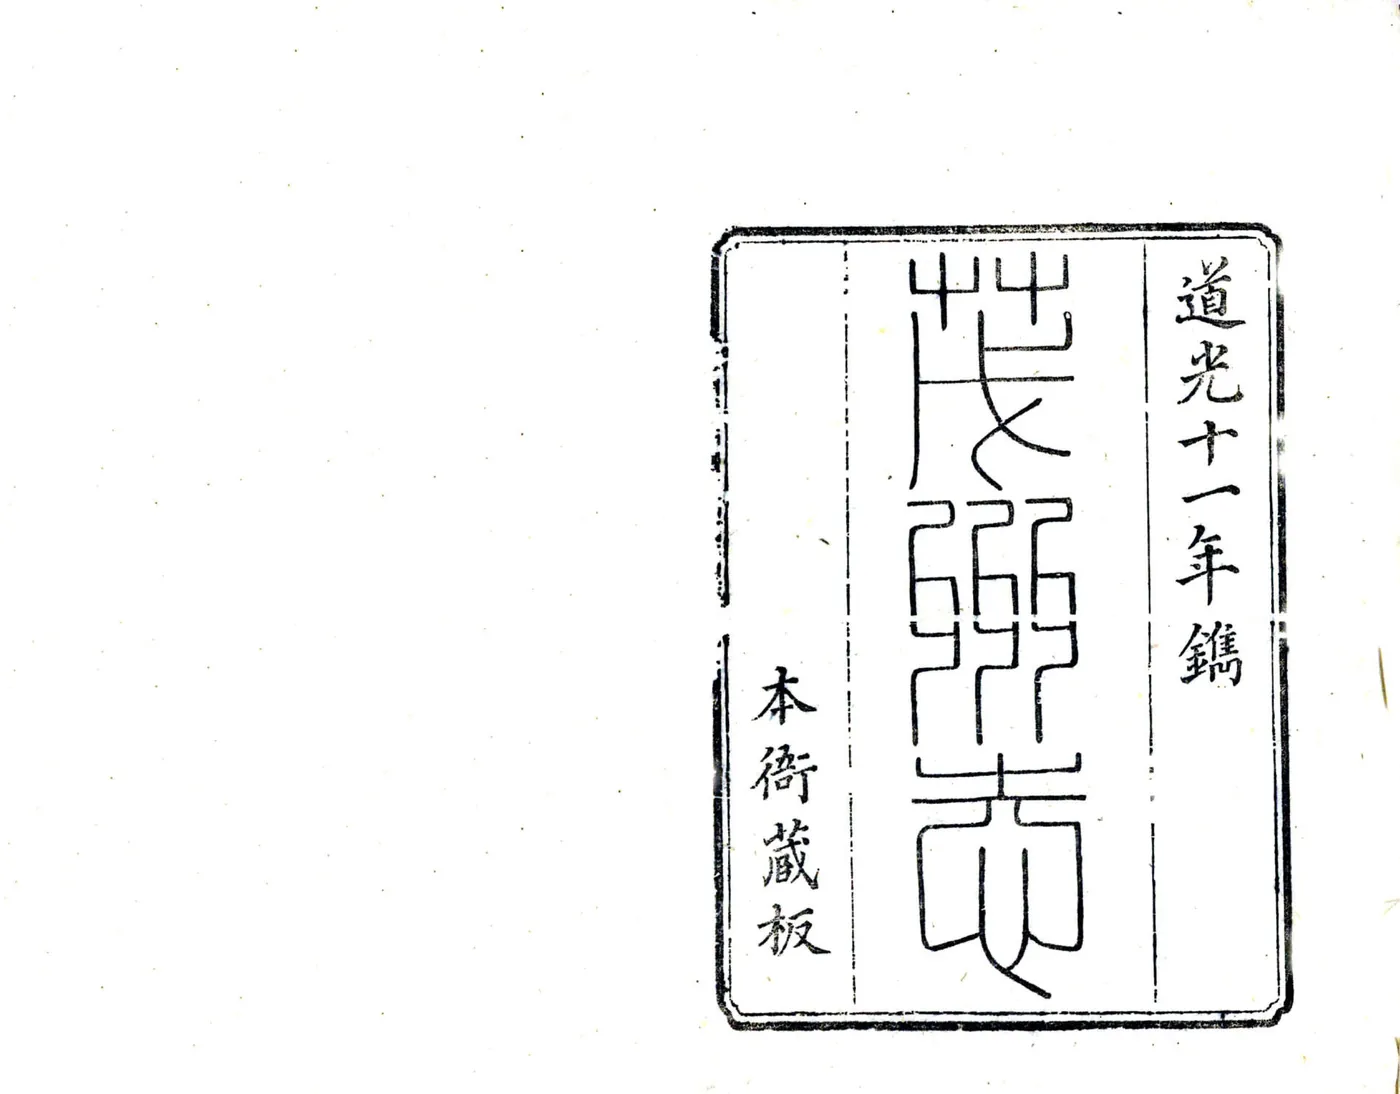 道光十一年鐫
茂州志
本衙藏板